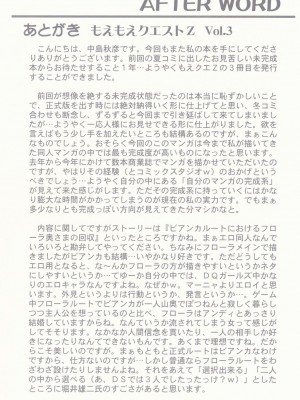 AFTER WORD
あとがき もえもえクエストZ Vol.3
こんにちは、中島秋彦です。今回もまた私の本を手にしてくださりありがとうございます。前回の夏コミに出したお見苦しい未完成本からお待たせすること1年…ようやくもえクエZの3冊目を発行することができました。
前回が想像を絶する未完成状態だったのは本当に恥ずかしいことで、正式版を出す時には絶対納得いく形に仕上げてと思い、冬コミ合わせも断念し、ずるずると今回まで引き延ばして来てしまいましたが…ようやく一応人様にお見せできる形に仕上がりました。欲を言えばもう少し手を加えたいところも結構あるのですが、まぁこんなものでしょう。おそらく今回のこのマンガは今まで私が描いてきた同人マンガの中では最も完成度が高いものになったと思います。去年から今年にかけて数本商業誌でマンガを描かせていただいたのですが、やはりその経験（とコミックスタジオw）のおかげというべきでしょう…ようやく自分の中にある「自分のマンガの完成系」が見えて来た感じがします。ただその完成系に持っていくにはかなり膨大な時間がかかってしまうのが現在の私の実力です。でもまぁ多少なりとも完成っぽい方向が見えてきた分マシかなと。
内容に関してですがストーリーは『ビアンカルートにおけるフローラ奥さまの回収』といったところですか。まぁエロ同人なんでいろいろと勘弁してやってください。ちなみにフローラメインで描きましたがビアンカも結構…いやかなり好きです。ただどうしてもエロ用となると、な～んかフローラの方が描きやすいというかネタにしやすいというか…てゆーか自分の中では、DQガールズ中かなりのエロキャラなんですよね。なぜかw。マーニャよりエロイと思います。外見というよりは行動というか、発言というか…。ゲーム中フローラルートでビアンカが一人山奥で寂しく暮らしつつ主人公を想っているのと比べ、フローラはアンディとあっさり結婚していますからね。なんていうか流されてしまう女って感じがしてそそります。なかなか人間信念を貫いたり、一人の相手しか好きになったりなんてできないもんです。あくまで理想ですね。だからこそ美しいのですが。まぁもともと正式ルートはビアンカなわけですから、仕方ないのですが…しかし普通ならフローラルートをわざわざ設けたりしませんよね。それをあえて「選択出来る」「二人の中から選べる（あ、DSでは3人でしたったっけ？w）」としたところに堀井雄二氏のすごさがあると思います。